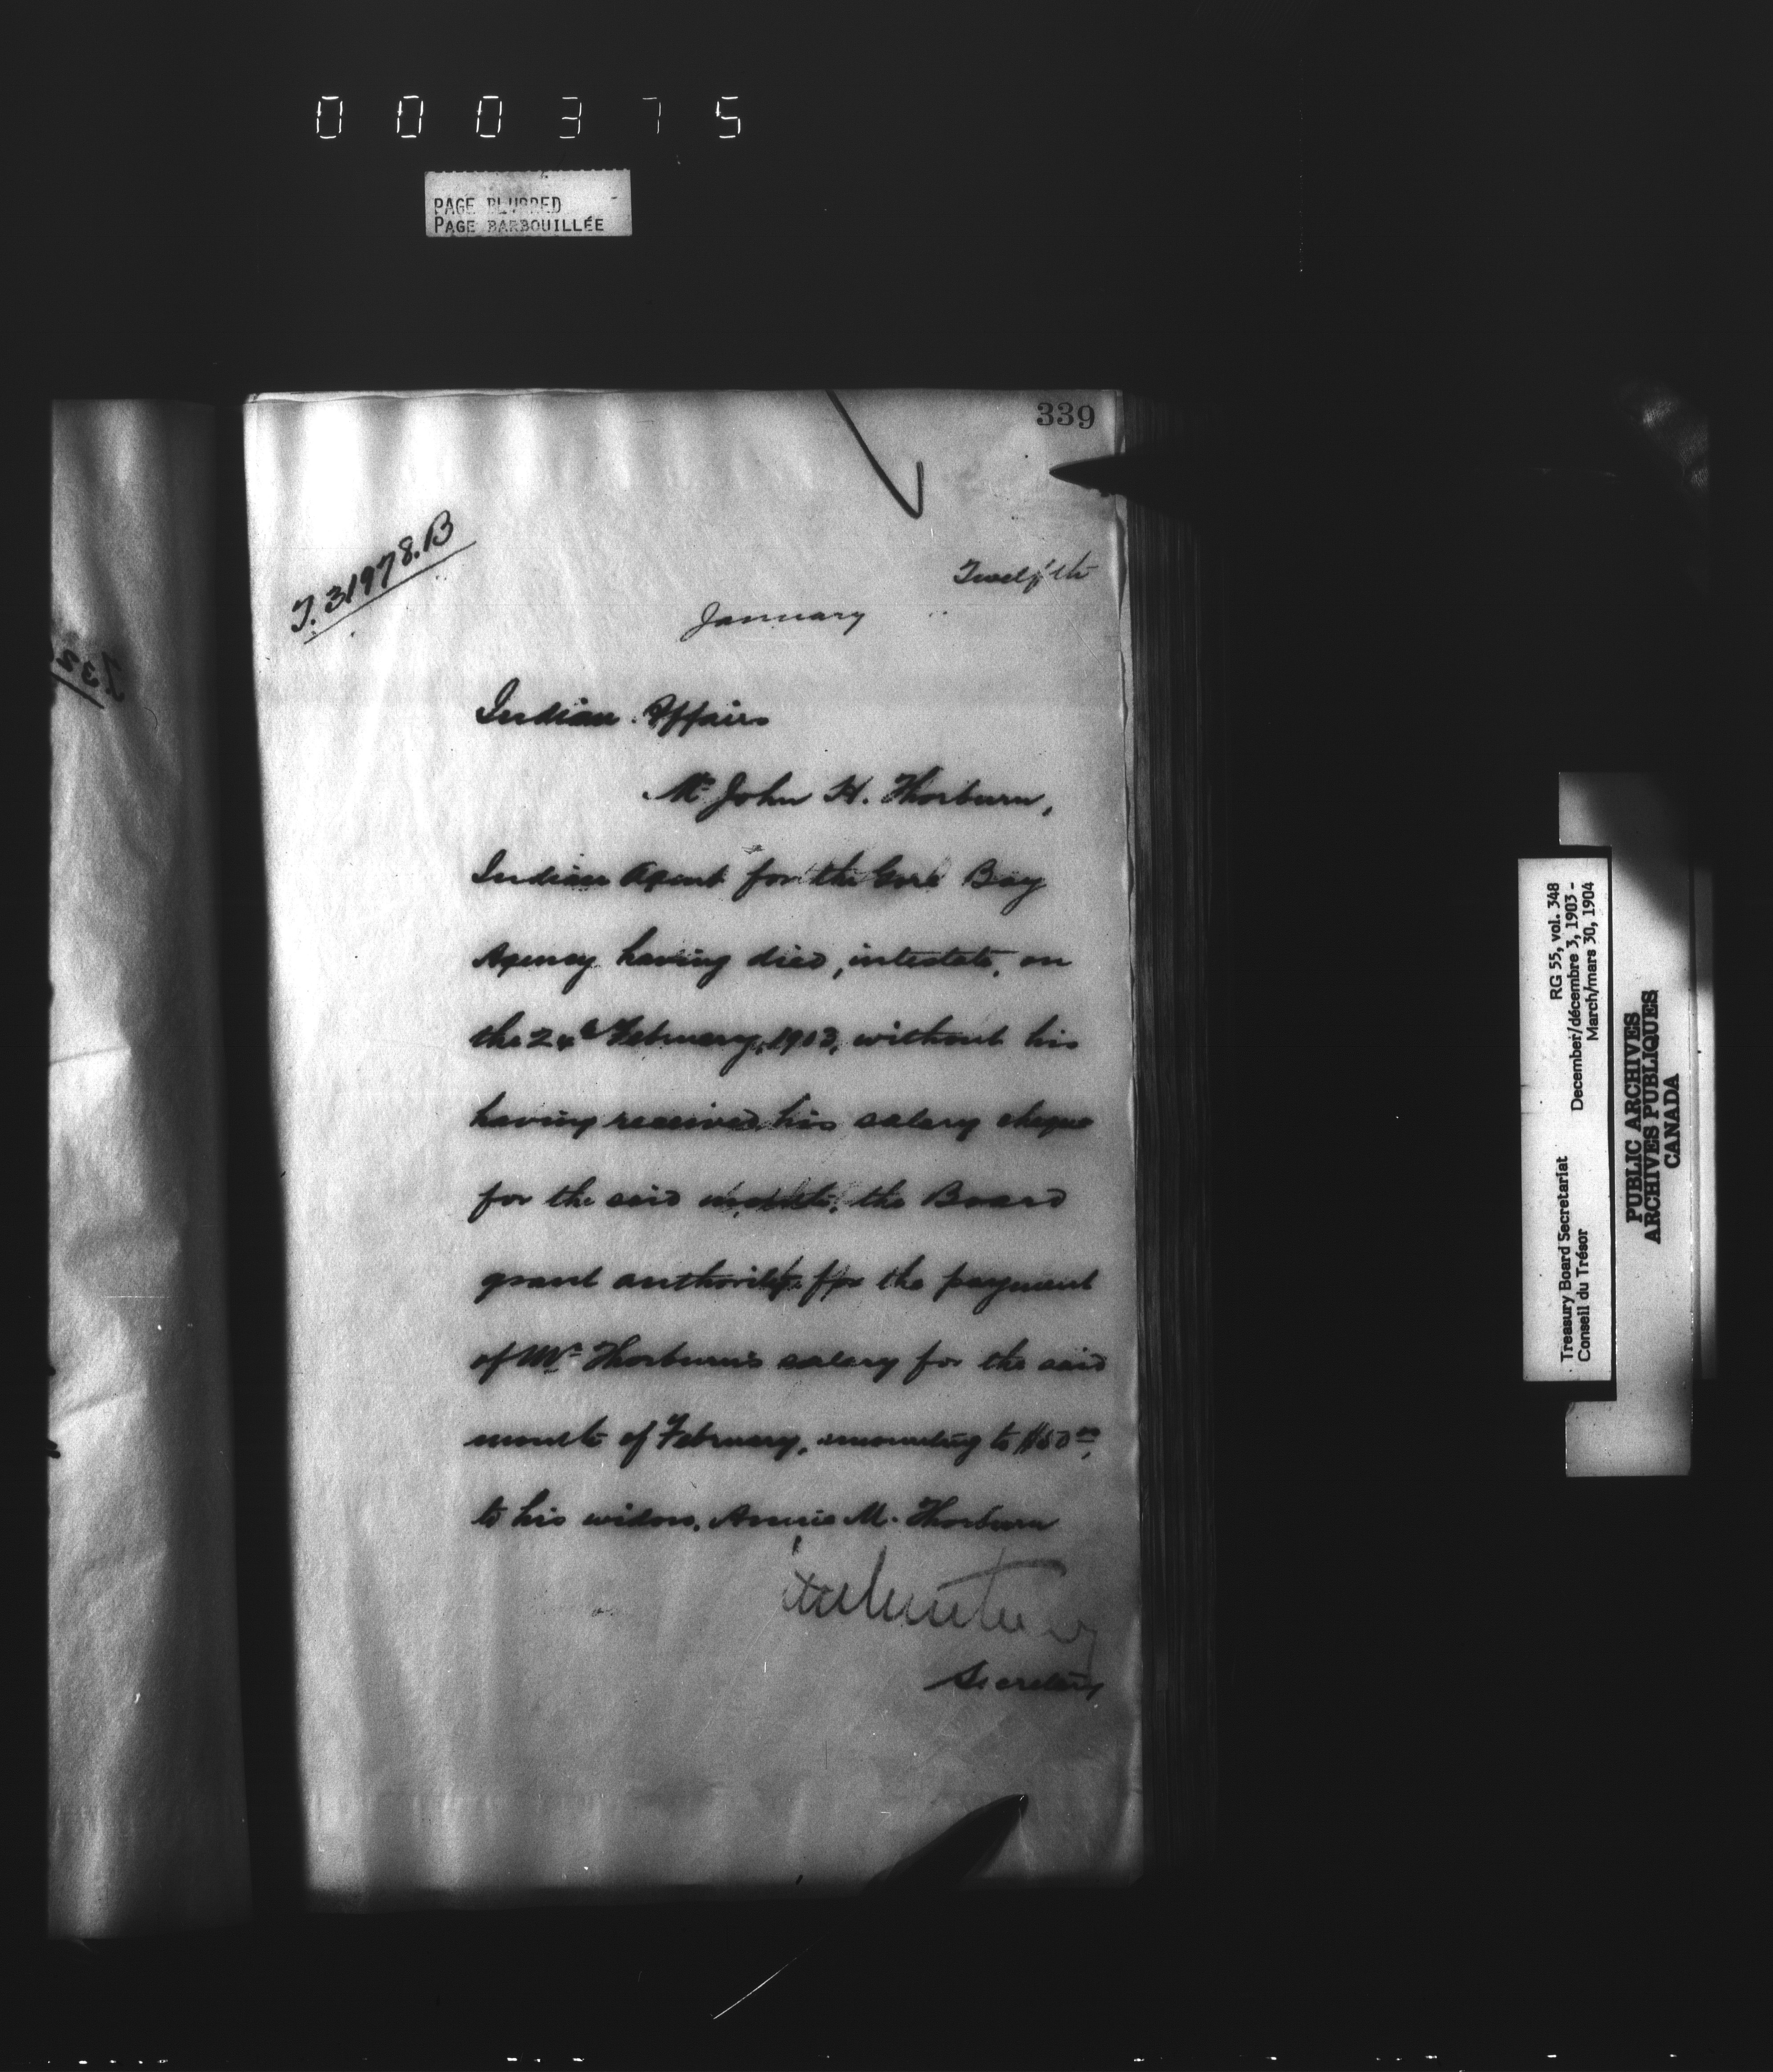 000375
PAGE BLURRED
PAGE BARBOUILLÉE
339
T. 31978.B
Twelfth
January
Indian Affairs
Mr John H. Thorburn,
Indian Agent for the Gore Bay
Agency having died, intestate, on
the 24th February, 1903, without his
having received his salary cheque
for the said month, the Board
grant authority for the payment
of Mr Thorburn's salary for the said
month of February, amounting to
to his widow, Annie M. Thorburn
Secretary
T.32
RG 55, vol. 348
December/décembre 3, 1903 -
March/mars 30, 1904
Treasury Board Secretariat
Conseil du Trésor
PUBLIC ARCHIVES
ARCHIVES PUBLIQUES
CANADA